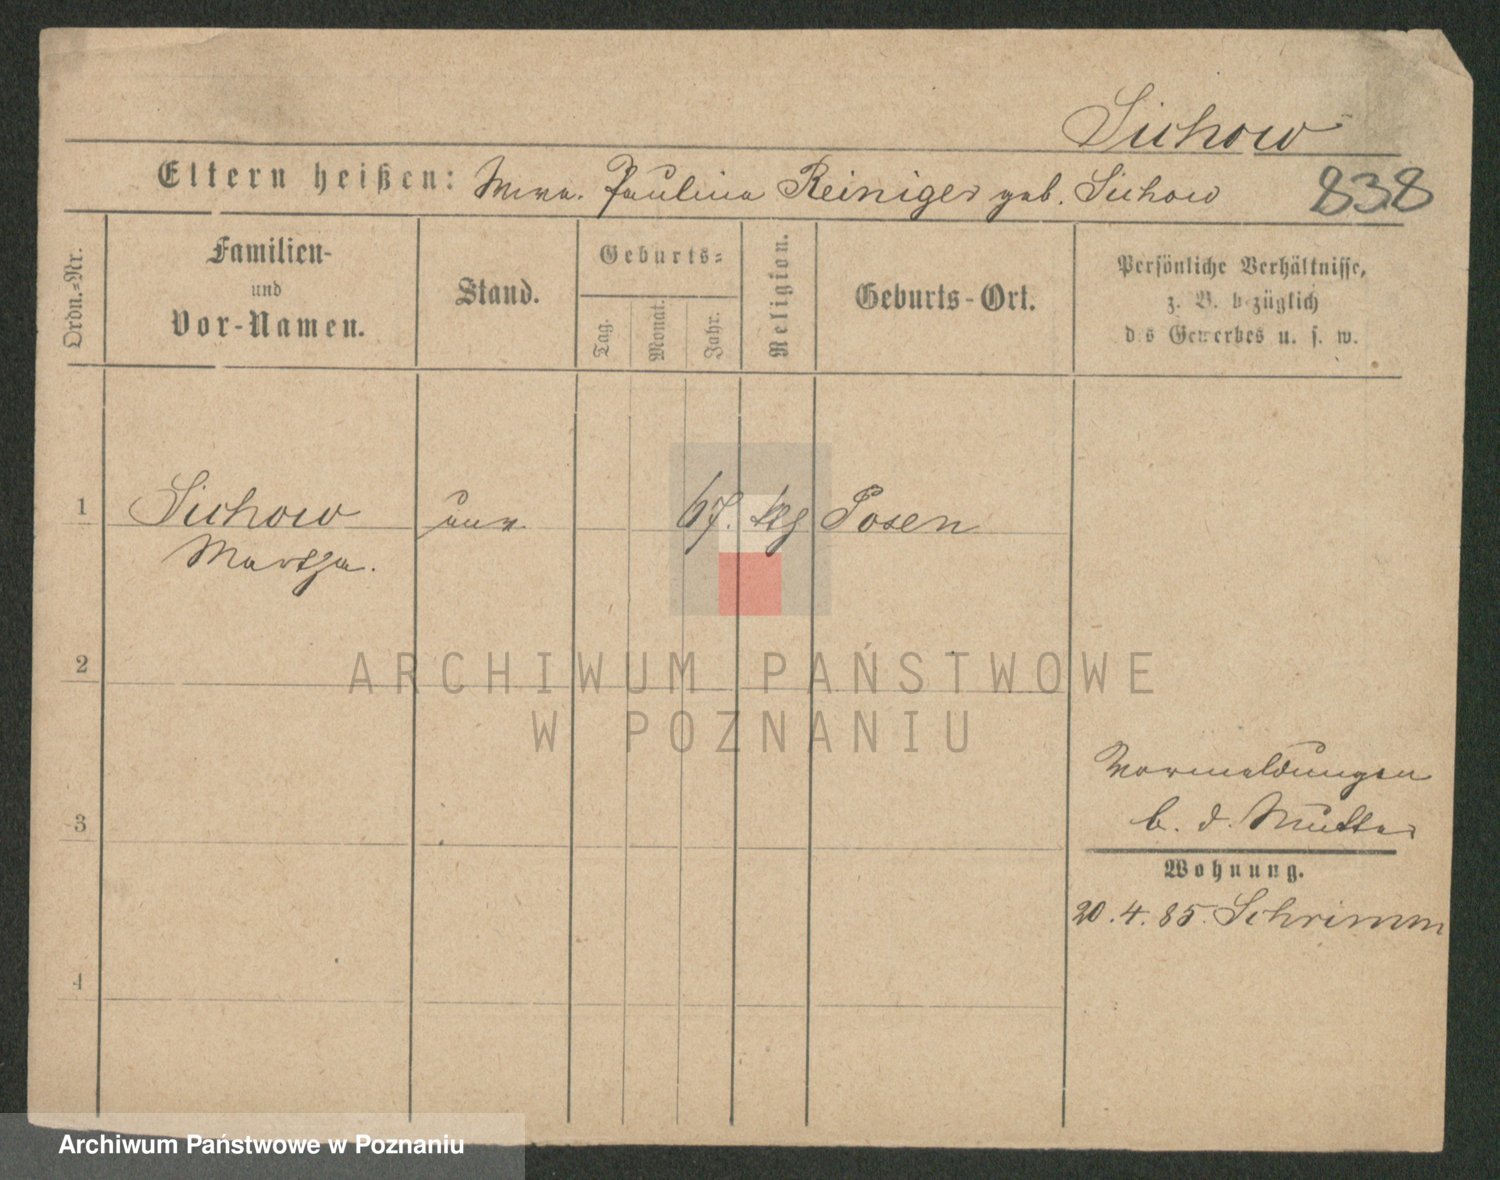 Sichow
Eltern heißen: Wwe. Paulina Reiniger geb. Sichow
838
Ordn.-Nr.
Familien-
und
Vor-Namen.
Stand.
Geburts-
Tag.
Monat.
Jahr.
Religion.
Geburts-Ort.
Persönliche Verhältnisse,
z. B. bezüglich
des Gewerbes u. s. w.
1 Sichow 67. Posen
Martha.
2
ARCHIWUM PAŃSTWOWE
W POZNANIU
Vormeldungen
b. d. Mutter
3
Wohnung.
20.4.85. Schrimm
4
Archiwum Państwowe w Poznaniu